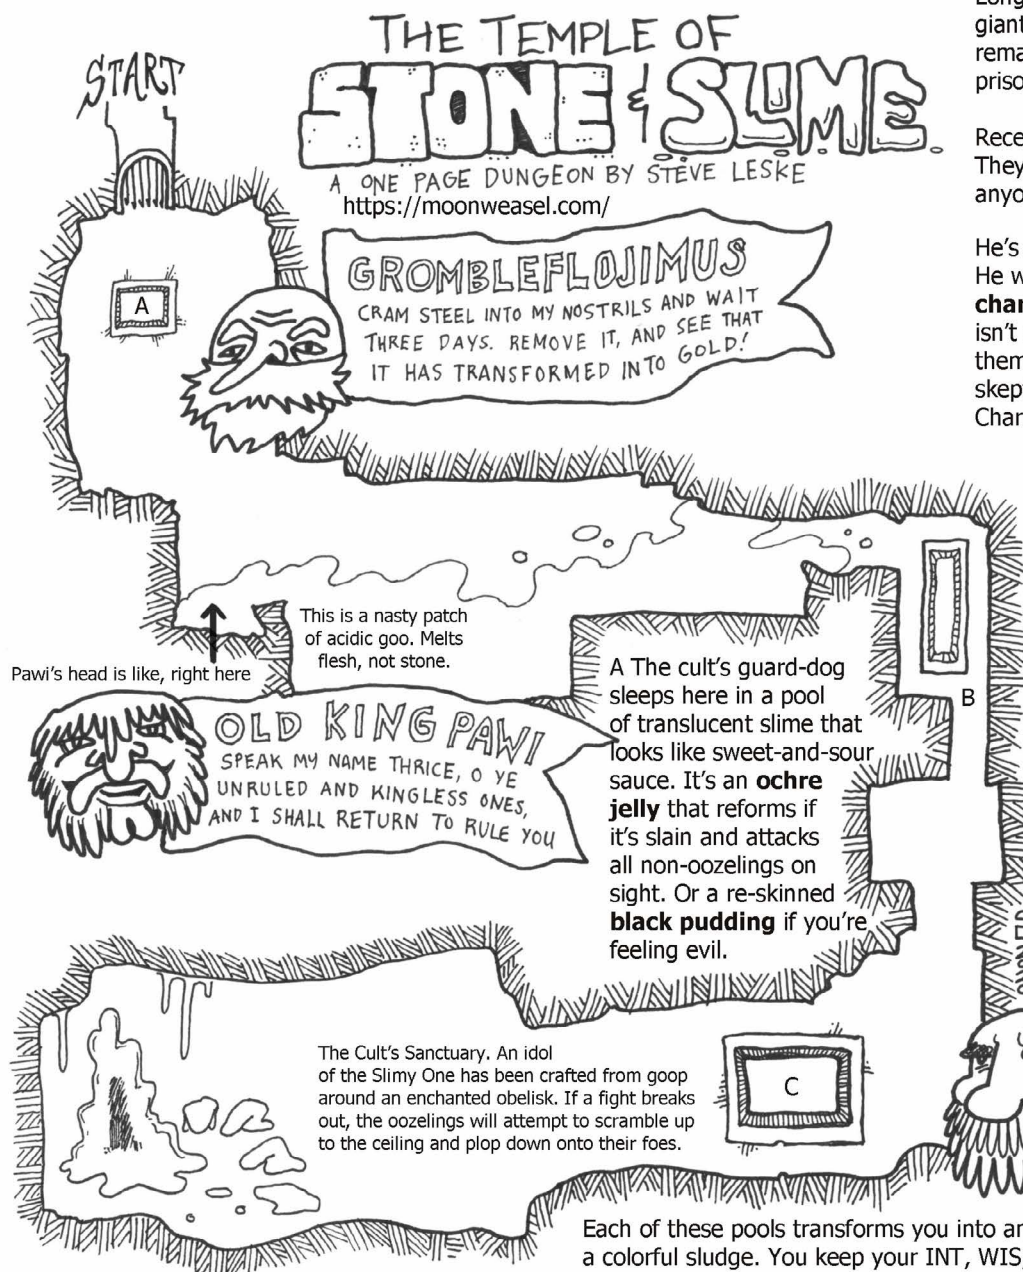 START
THE TEMPLE OF
STONE & SLIME
A ONE PAGE DUNGEON BY STEVE LESKE
https://moonweasel.com/
giant
Rece
They
anyo
He's
He w
char
isn't
them
skep
Char
GROMBLEFLOJIMUS
CRAM STEEL INTO MY NOSTRILS AND WAIT
THREE DAYS. REMOVE IT, AND SEE THAT
IT HAS TRANSFORMED INTO GOLD!
A
This is a nasty patch
of acidic goo. Melts
flesh, not stone.
Pawi's head is like, right here
OLD KING PAWI
SPEAK MY NAME THRICE, O YE
UNRULED AND KINGLESS ONES,
AND I SHALL RETURN TO RULE YOU
A The cult's guard-dog
sleeps here in a pool
of translucent slime that
looks like sweet-and-sour
sauce. It's an ochre
jelly that reforms if
it's slain and attacks
all non-oozelings on
sight. Or a re-skinned
black pudding if you're
feeling evil.
B
The Cult's Sanctuary. An idol
of the Slimy One has been crafted from goop
around an enchanted obelisk. If a fight breaks
out, the oozelings will attempt to scramble up
to the ceiling and plop down onto their foes.
C
Each of these pools transforms you into an
a colorful sludge. You keep your INT, WIS,